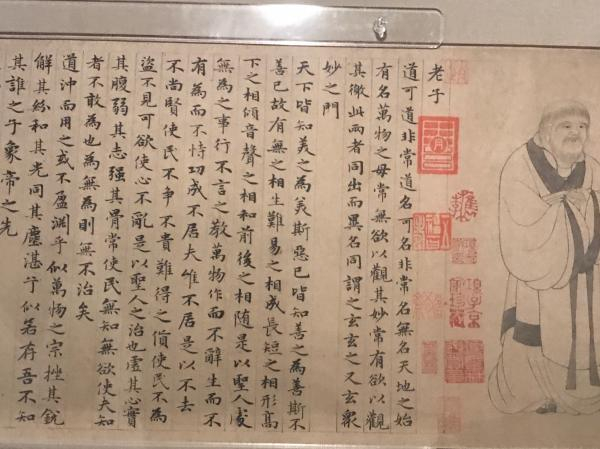 老子
道可道非常道名可名非常名無名天地之始
有名萬物之母常無欲以觀其妙常有欲以觀
其徼此兩者同出而異名同謂之玄玄之又玄衆
妙之門
天下皆知美之為美斯惡已皆知善之為善斯不
善已故有無之相生難易之相成長短之相形髙
下之相傾音聲之相和前後之相隨是以聖人處
無為之事行不言之教萬物作而不辭生而不
有為而不恃功成不居夫惟不居是以不去
不尚賢使民不爭不貴難得之貨使民不為
盜不見可欲使心不亂是以聖人之治也虛其心實
其腹弱其志强其骨常使民無知無欲使夫知
者不敢為也為無為則無不治矣
道沖而用之或不盈淵乎似萬物之宗挫其銳
解其紛和其光同其塵湛乎似若存吾不知
其誰之子象帝之先